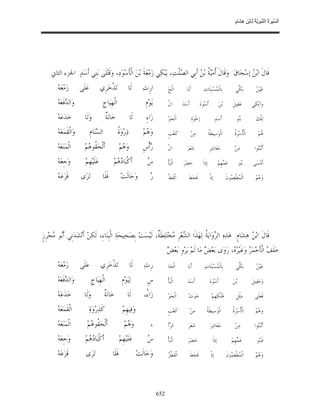 السِّيرَةُ النَّبَوِيَّةُ لِابْنِ هِشَامٍ
قَالَ ابْنُ إسْحَاقَ: وَقَالَ أُمَيَّةُ بْنُ أَبِي الصَّلْتِ، يَبْكِي زَمْعَةَ بْنَ الْأَسْوَدِ، وَقَتْلَى بَنِي أَسَدٍ الجزء الثاني
عَيْنُ بَكِّي بِالْمُسْبَلَاتِ أَبَا الْحَ ارِثِ لَا تَذْخَرِي عَلَى زَمَعَهْ
وَابْكِي عَقِيلَ بْنَ أَسْوَدَ أَسَدَ الْ يَوْمِ الْهِيَاجِ وَالدَّفَعَهْ
تِلْكَ بَنُو أَسَدٍ إخْوَةُ الْجَوْ زَاءِ لَا خَانَةٌ وَلَا خَدَعَهْ
هُمْ الْأُسْرَةُ الْوَسِيطَةُ مِنْ كَعْبٍ وَهُمْ ذِرْوَةُ السَّنَامِ وَالْقَمَعَهْ
أَنْبَتُوا مِنْ مَعَاشِرَ شَعَرَ الْ رَّأْسِ وَهُمْ أَلْحَقُوهُمْ الْمَنَعَهْ
أَمْسَى بَنُو عَمِّهِمْ إذَا حَضَرَ الْبَأْ سُ أَكْبَادُهُمْ عَلَيْهِمْ وَجِعَهْ
وَهُمْ الْمُطْعِمُونَ إذْ قَحَطَ الْقَطْ رُ وَحَالَتْ فَلَا تَرَى قَزَعَهْ
قَالَ ابْنُ هِشَامٍ: هَذِهِ الرِّوَايَةُ لِهَذَا الشِّعْرِ مُخْتَلِطَةٌ، لَيْسَتْ بِصَحِيحَةِ الْبِنَاءِ، لَكِنْ أَنْشَدَنِي أَبُو مُحْرِزٍ
خَلَفُ الْأَحْمَرُ وَغَيْرُهُ، رَوَى بَعْضٌ مَا لَمْ يَرْوِ بَعْضٌ
عَيْنُ بَكِّي بِالْمُسْبَلَاتِ أَبَا الْحَا رِثِ لَا تَذْخَرِي عَلَى زَمَعَهْ
وَعَقِيلَ بْنَ أَسْوَدَ أَسَدَ الْبَأْ سِ لِيَوْمِ الْهِيَاجِ وَالدَّفَعَهْ
فَعَلَى مِثْلِ هُلْكِهِمْ خَوَتْ الْجَوْ زَاءُ، لَا خَانَةٌ وَلَا خَدَعَهْ
وَهُمْ الْأُسْرَةُ الْوَسِيطَةُ مِنْ كَعْبٍ وَفِيهِمْ كَذِرْوَةِ الْقَمَعَهْ
أَنْبَتُوا مِنْ مَعَاشِرَ شَعَرَ الرَّأْ ، وَهُمْ أَلْحَقُوهُمْ الْمَنَعَهْ
فَبَنُو عَمِّهِمْ إذَا حَضَرَ الْبَأْ سُ عَلَيْهِمْ أَكْبَادُهُمْ وَجِعَهْ
وَهُمْ الْمُطْعِمُونَ إذْ قَحَطَ الْقَطْرُ وَحَالَتْ فَلَا تَرَى قَزَعَهْ
652